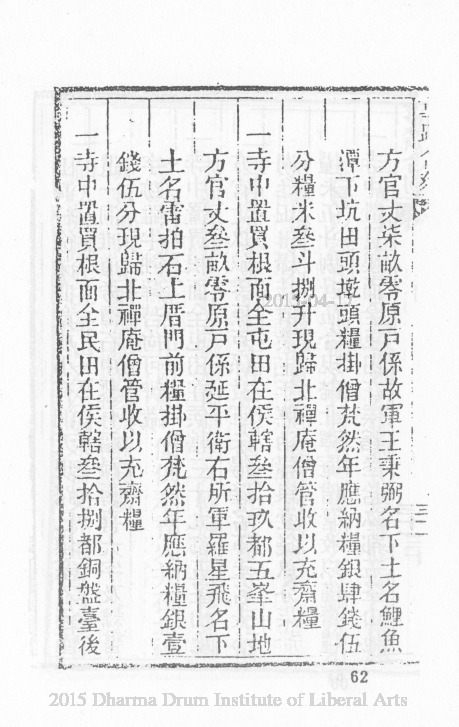 方官丈柒畝零原戸係故軍王秉弼名下土名鯉魚
潭下坑田頭墩頭糧掛僧梵然年應納糧銀肆錢伍
分糧米叁斗捌升現歸北禪庵僧管收以充齋糧
一寺中置買根面全屯田在侯轄叁拾玖都五峯山地
方官丈叁畝零原戸係延平衛右所軍羅星飛名下
土名雷拍石上厝門前糧掛僧梵然年應納糧銀壹
錢伍分現歸北禪庵僧管收以充齋糧
一寺中置買根面全民田在侯轄叁拾捌都銅盤臺後
三二
62
2015 Dharma Drum Institute of Liberal Arts